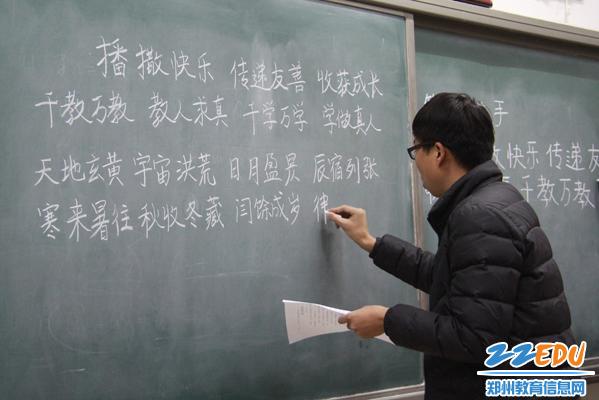 播撒快乐 传递友善 收获成长
千教万教 教人求真 千学万学 学做真人
天地玄黄 宇宙洪荒 日月盈昃 辰宿列张
寒来暑往 秋收冬藏 闫馀成岁 律
手
快乐 传递友
千教万教
ZZEDU
郑州教育信息网